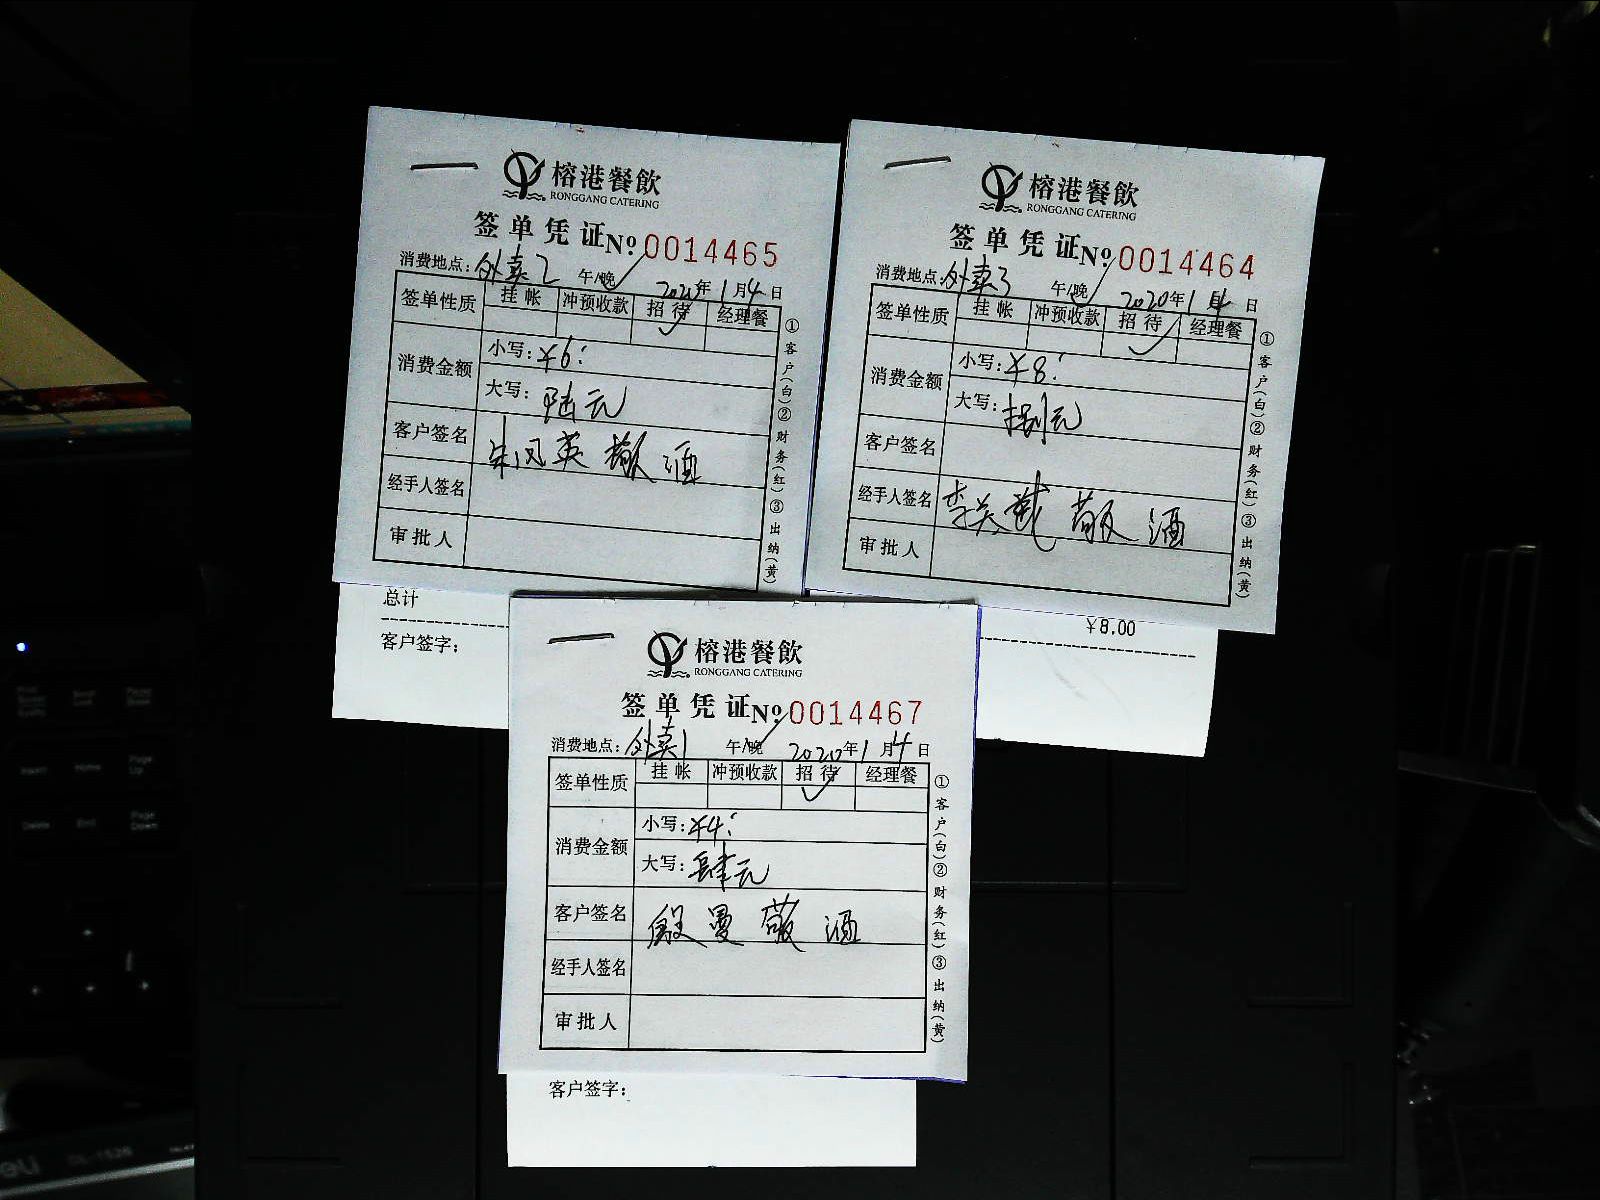 榕港餐飲
RONGGANG CATERING
签单凭证 №0014465
消费地点：外卖2 午/晚 2020年1月4日
签单性质 挂帐 冲预收款 招待 经理餐
✓
消费金额 小写：¥6：
大写：陆元
客户签名 朱凤英敬酒
经手人签名
审批人
①客户(白)②财务(红)③出纳(黄)
总计
客户签字：
榕港餐飲
RONGGANG CATERING
签单凭证 №0014464
消费地点：外卖3 午/晚 2020年1月4日
签单性质 挂帐 冲预收款 招待 经理餐
✓
消费金额 小写：¥8：
大写：捌元
客户签名
经手人签名 李关斌敬酒
审批人
①客户(白)②财务(红)③出纳(黄)
¥8.00
榕港餐飲
RONGGANG CATERING
签单凭证 №0014467
消费地点：外卖1 午/晚 2020年1月4日
签单性质 挂帐 冲预收款 招待 经理餐
✓
消费金额 小写：¥4：
大写：肆元
客户签名 殷曼敬酒
经手人签名
审批人
①客户(白)②财务(红)③出纳(黄)
客户签字：